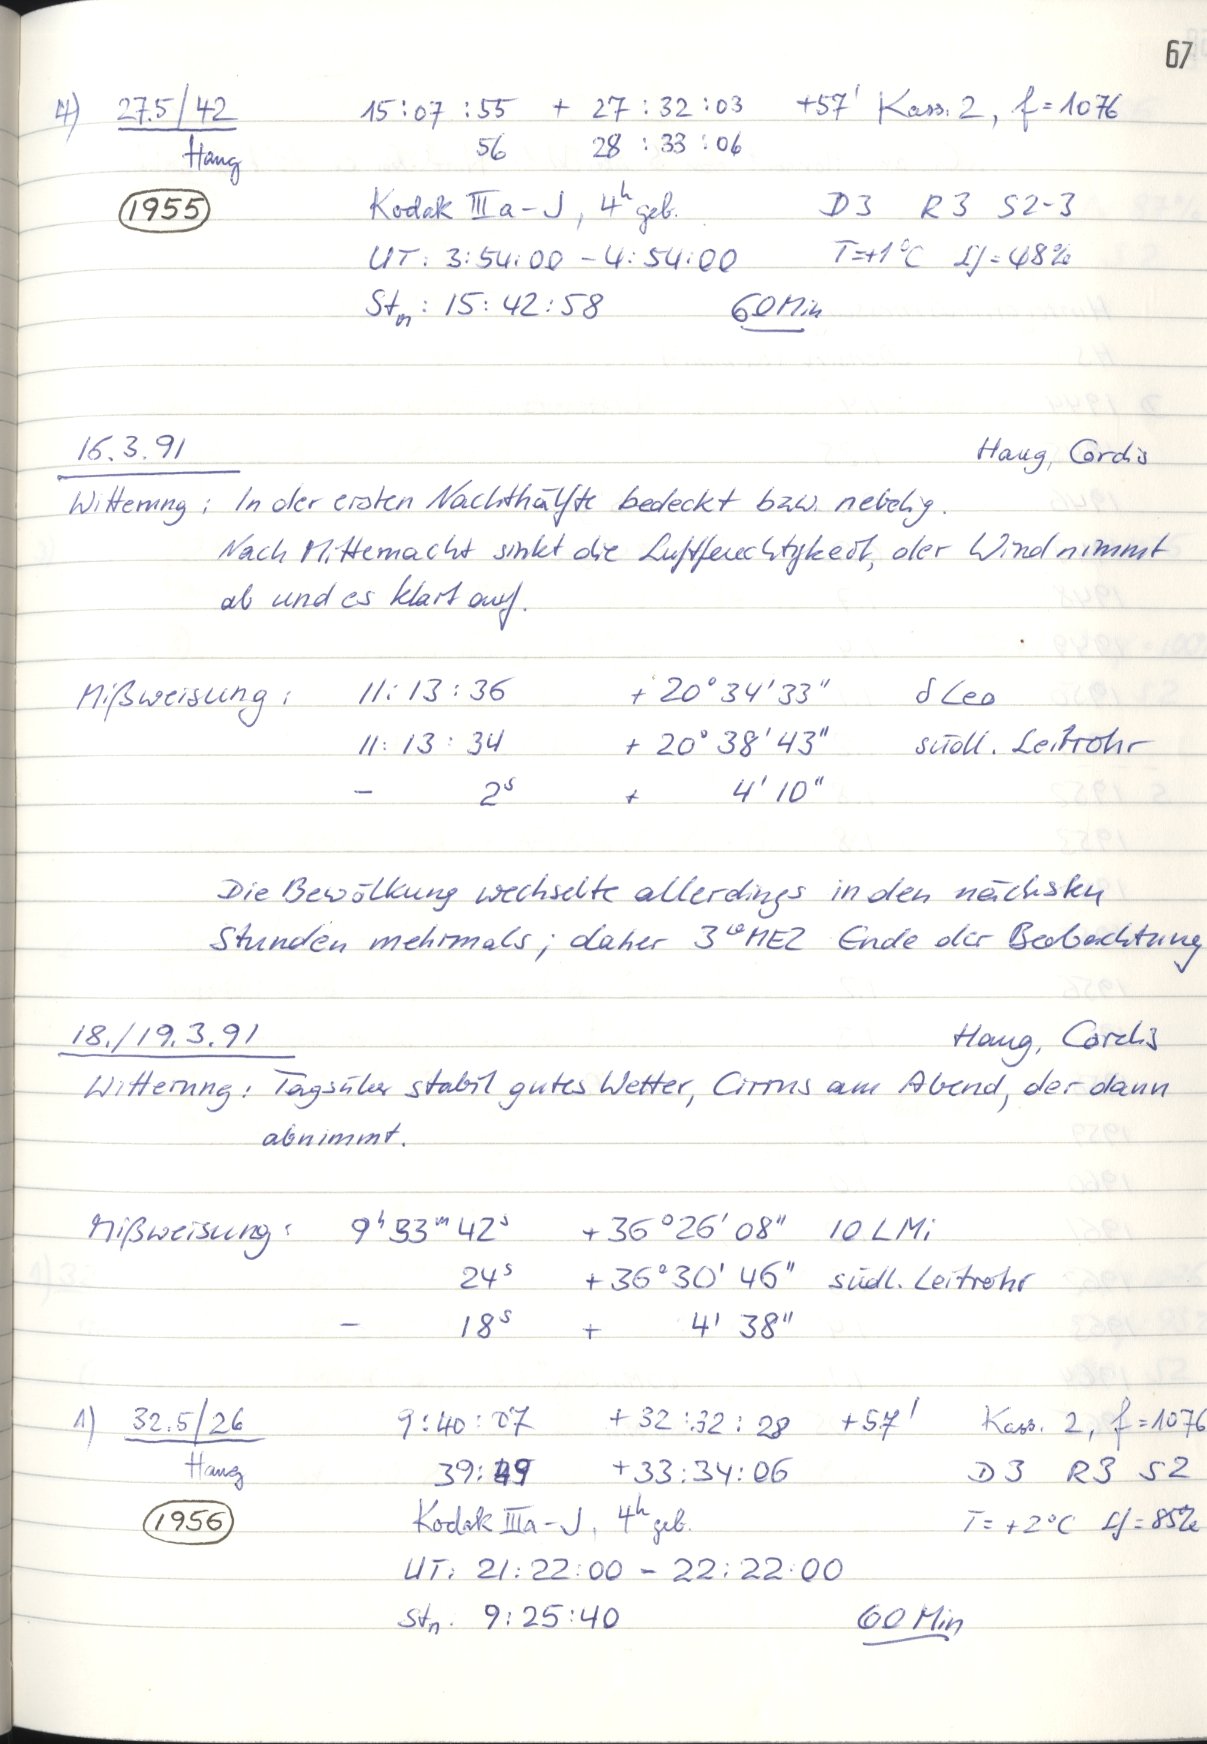 67
4) 27.5/42 15:07:55 + 27:32:03 +57' Kass. 2, f=1076
Haug 56 28:33:06
1955 Kodak IIIa-J, 4h geb. D3 R3 S2-3
UT: 3:54:00 - 4:54:00 T=+1°C Lf=48%
Stm: 15:42:58 60 Min
16.3.91 Haug, Cordis
Witterung: In der ersten Nachthälfte bedeckt bzw. nebelig.
Nach Mitternacht sinkt die Luftfeuchtigkeit, der Wind nimmt
ab und es klart auf.
Mißweisung: 11:13:36 +20°34'33" δ Leo
11:13:34 +20°38'43" südl. Leitrohr
- 2s + 4'10"
Die Bewölkung wechselte allerdings in den nächsten
Stunden mehrmals; daher 3 MEZ Ende der Beobachtung
18./19.3.91 Haug, Cordis
Witterung: Tagsüber stabil gutes Wetter, Cirrus am Abend, der dann
abnimmt.
Mißweisung: 9h 33m 42s +36°26'08" 10 LMi
24s +36°30'46" südl. Leitrohr
- 18s + 4'38"
1) 32.5/26 9:40:07 +32:32:28 +57' Kass. 2, f=1076
Haug 39:49 +33:34:06 D3 R3 S2
1956 Kodak IIIa-J, 4h geb. T=+2°C Lf=85%
UT: 21:22:00 - 22:22:00
Stm. 9:25:40 60 Min